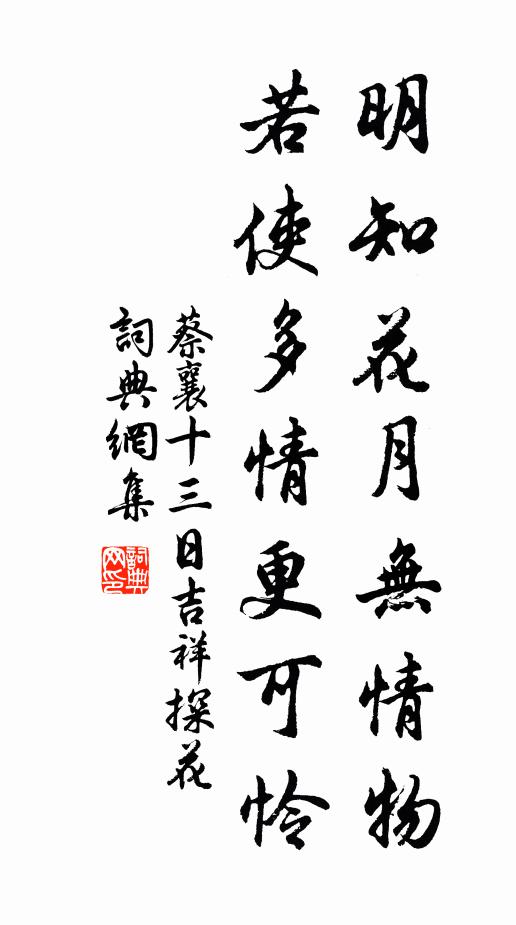 明知花月無情物
若使多情更可憐
蔡襄十三日吉祥探花
詞典網集
詞典网印